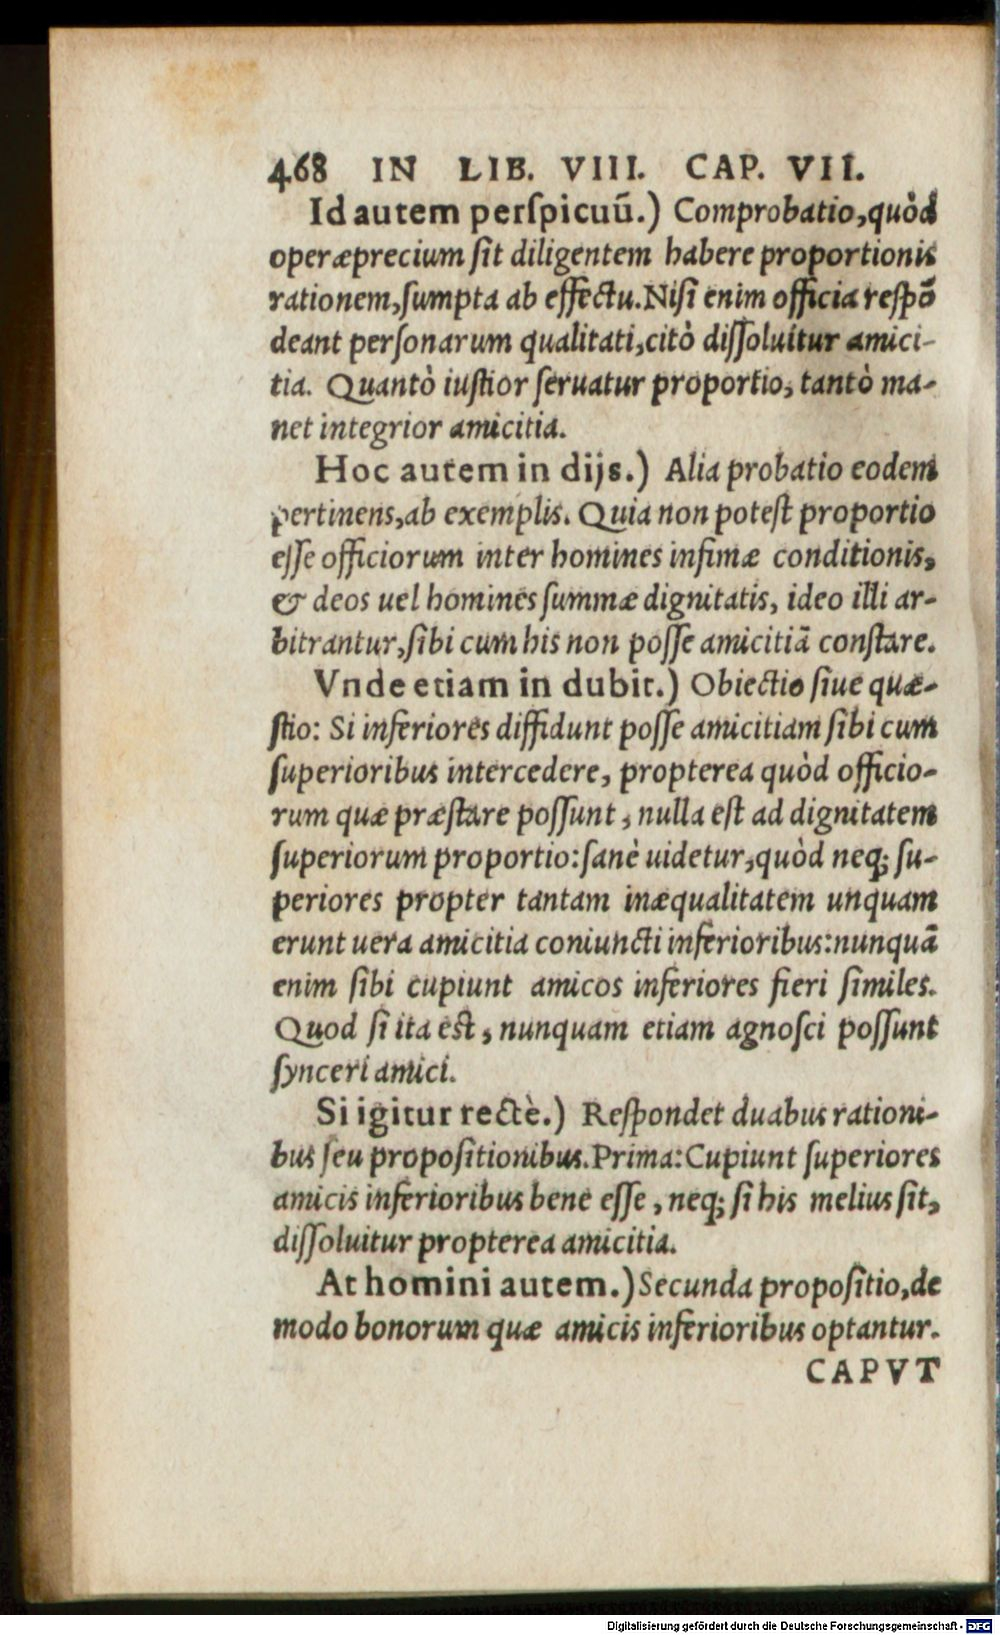 468 IN LIB. VIII. CAP. VII.
Id autem perſpicuū.) Comprobatio, quòd
operæprecium ſit diligentem habere proportionis
rationem, ſumpta ab effectu. Niſi enim officia reſpō
deant perſonarum qualitati, citò diſſoluitur amici-
tia. Quantò iuſtior ſeruatur proportio, tantò ma-
net integrior amicitia.
Hoc autem in dijs.) Alia probatio eodem
pertinens, ab exemplis. Quia non poteſt proportio
eſſe officiorum inter homines infimæ conditionis,
& deos uel homines ſummæ dignitatis, ideo illi ar-
bitrantur, ſibi cum his non poſſe amicitiā conſtare.
Vnde etiam in dubit.) Obiectio ſiue quæ-
ſtio: Si inferiores diffidunt poſſe amicitiam ſibi cum
ſuperioribus intercedere, propterea quòd officio-
rum quæ præſtare poſſunt, nulla eſt ad dignitatem
ſuperiorum proportio: ſanè uidetur, quòd neq; ſu-
periores propter tantam inæqualitatem unquam
erunt uera amicitia coniuncti inferioribus: nunquā
enim ſibi cupiunt amicos inferiores fieri ſimiles.
Quod ſi ita eſt, nunquam etiam agnoſci poſſunt
ſynceri amici.
Si igitur rectè.) Reſpondet duabus rationi-
bus ſeu propoſitionibus. Prima: Cupiunt ſuperiores
amicis inferioribus bene eſſe, neq; ſi his melius ſit,
diſſoluitur propterea amicitia.
At homini autem.) Secunda propoſitio, de
modo bonorum quæ amicis inferioribus optantur.
CAPVT
Digitalisierung gefördert durch die Deutsche Forschungsgemeinschaft - DFG